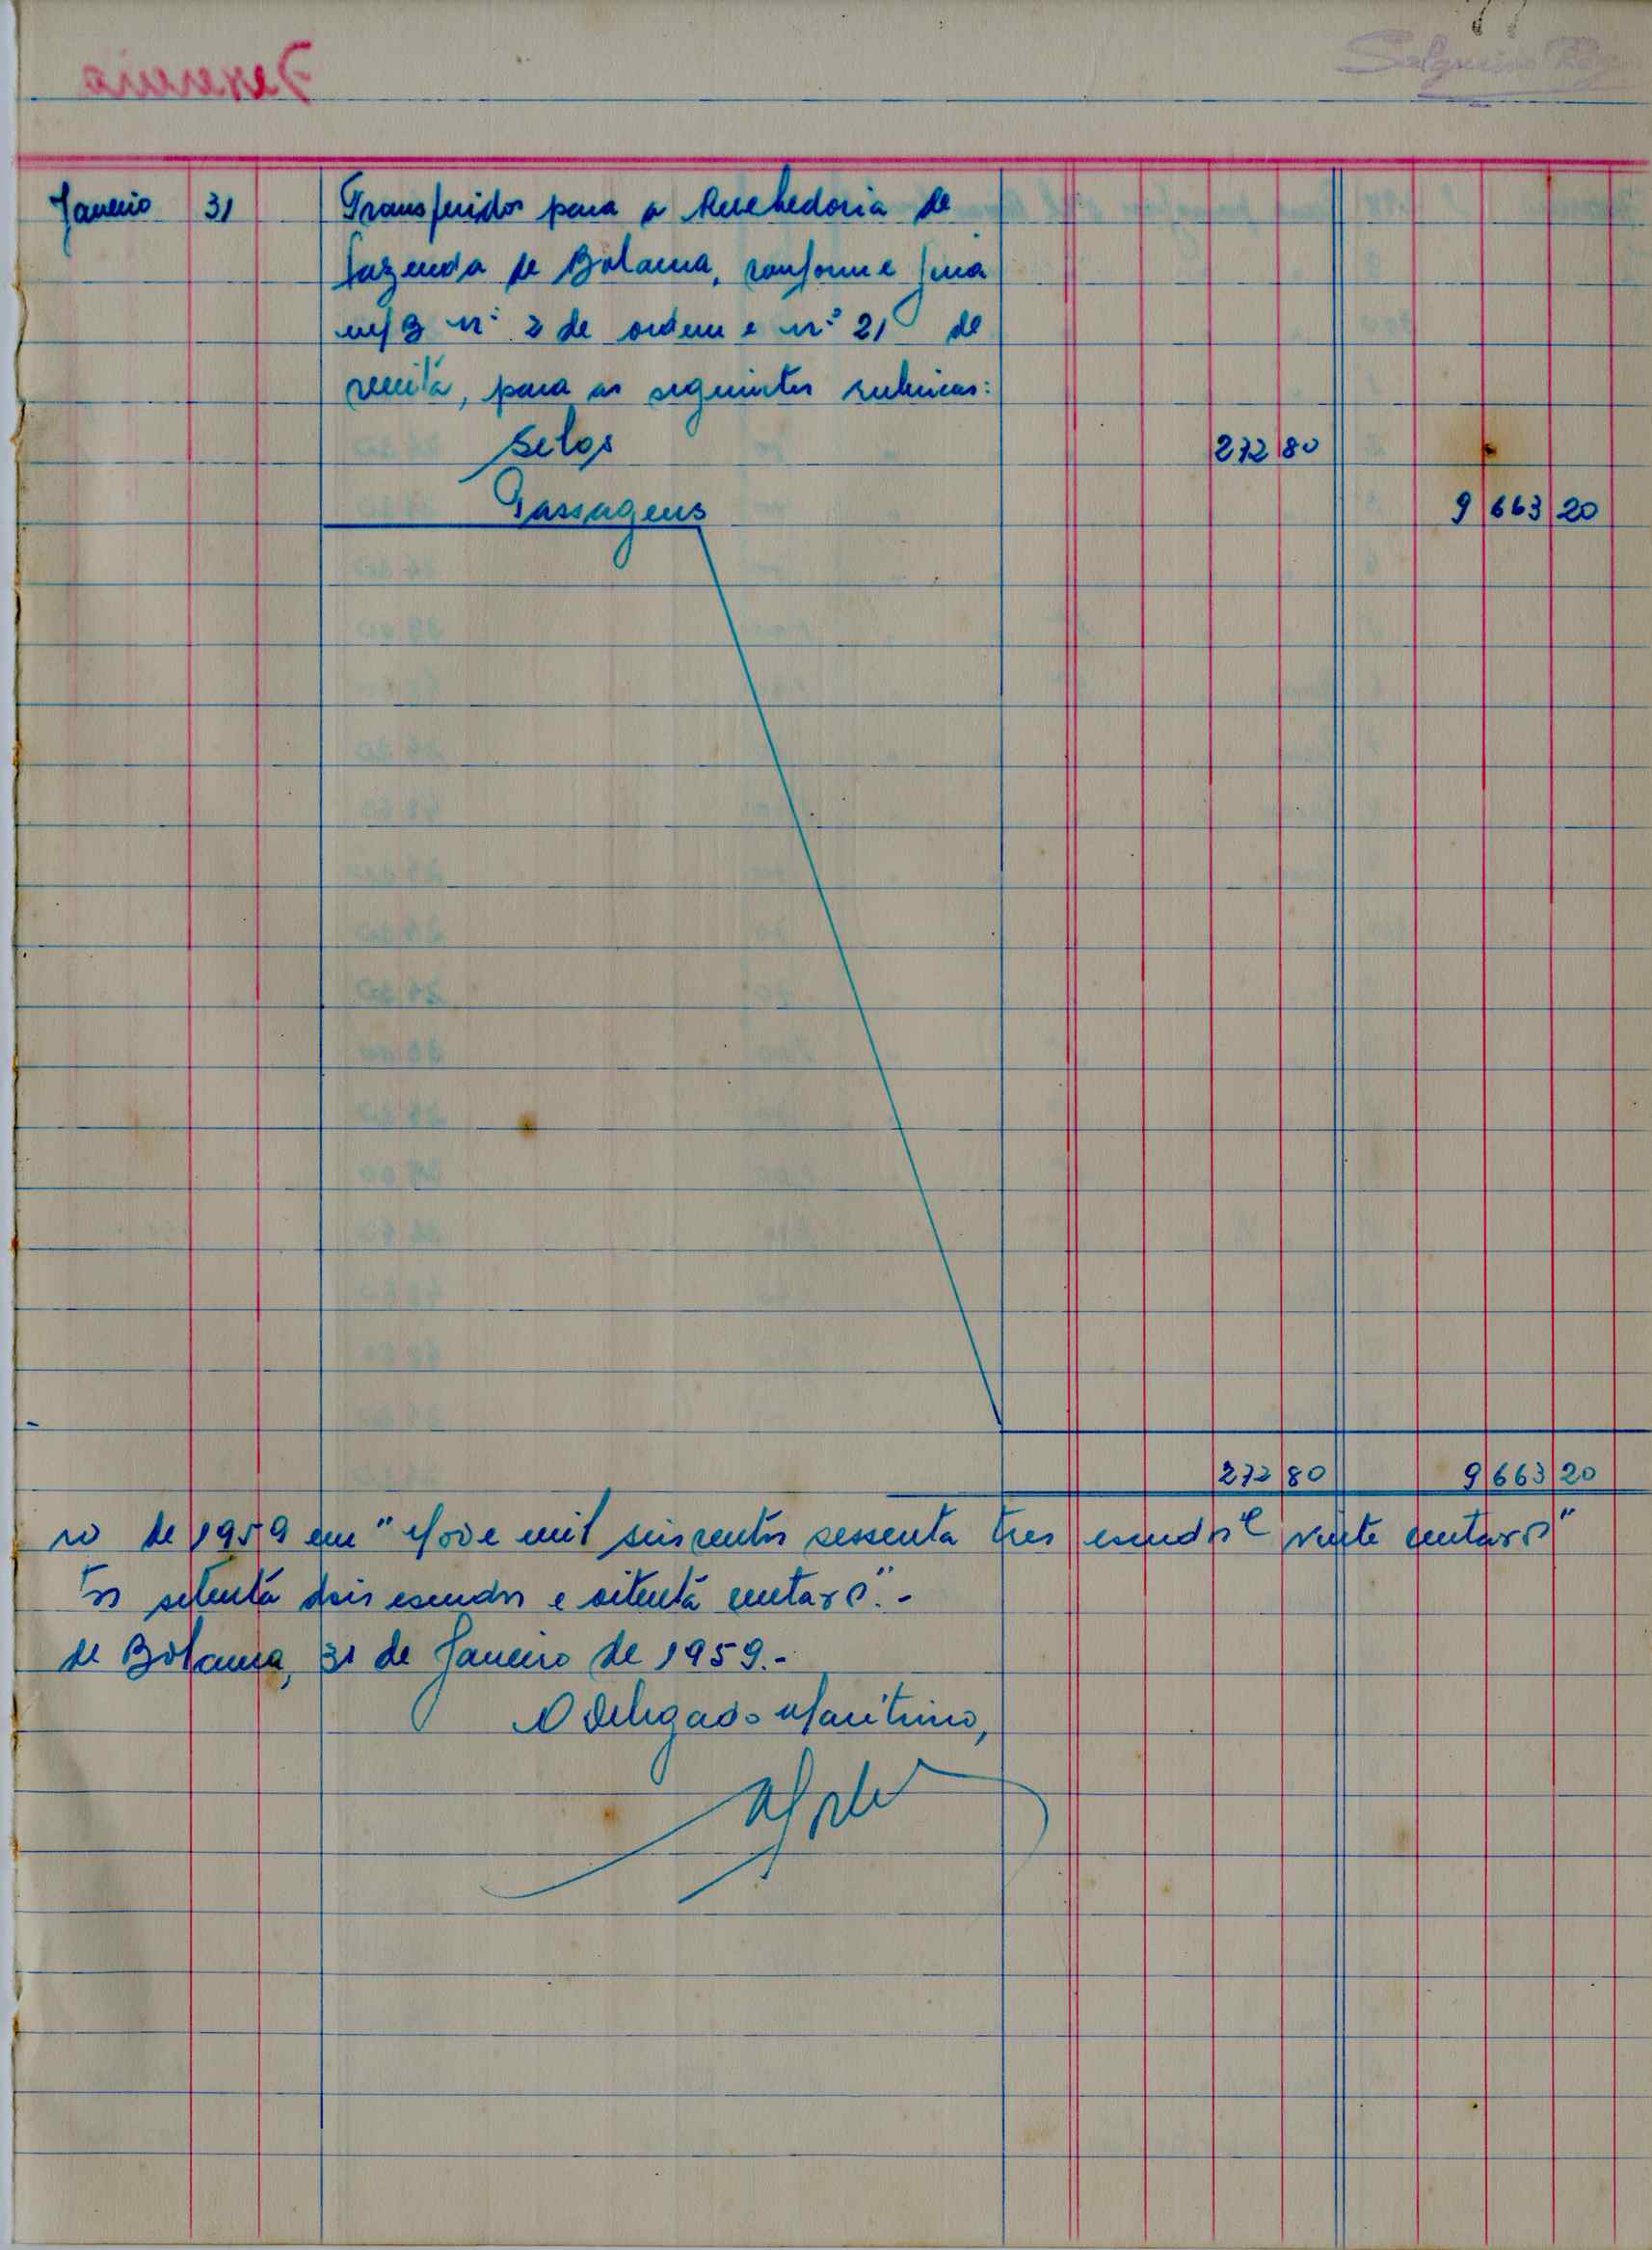 Salgueiro Rey
Janeiro 31 Transferidos para a Recebedoria de
Fazenda de Bolama, conforme guia
m/B nº 2 de ordem e nº 21 de
receita, para as seguintes rubricas:
Selos 272 80
Passagens 9 663 20
272 80 9 663 20
ro de 1959 em "Nove mil seiscentos sessenta tres escudos e vinte centavos"
tos setenta dois escudos e oitenta centavos".-
de Bolama, 31 de Janeiro de 1959.-
O Delegado Maritimo,